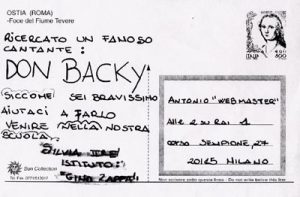 OSTIA (ROMA)
-Foce del Fiume Tevere
RICERCATO UN FAMOSO
CANTANTE:
DON BACKY
SICCOME SEI BRAVISSIMO
AIUTACI A FARLO
VENIRE NELLA NOSTRA
SCUOLA.
SILVIA
ISTITUTO:
"GINO ZAPPA"
ITALIA
800
ANTONIO "WEBMASTER"
ALLE 2 SU RAI 1
CORSO SEMPIONE, 27
20145 MILANO
Sun Collection